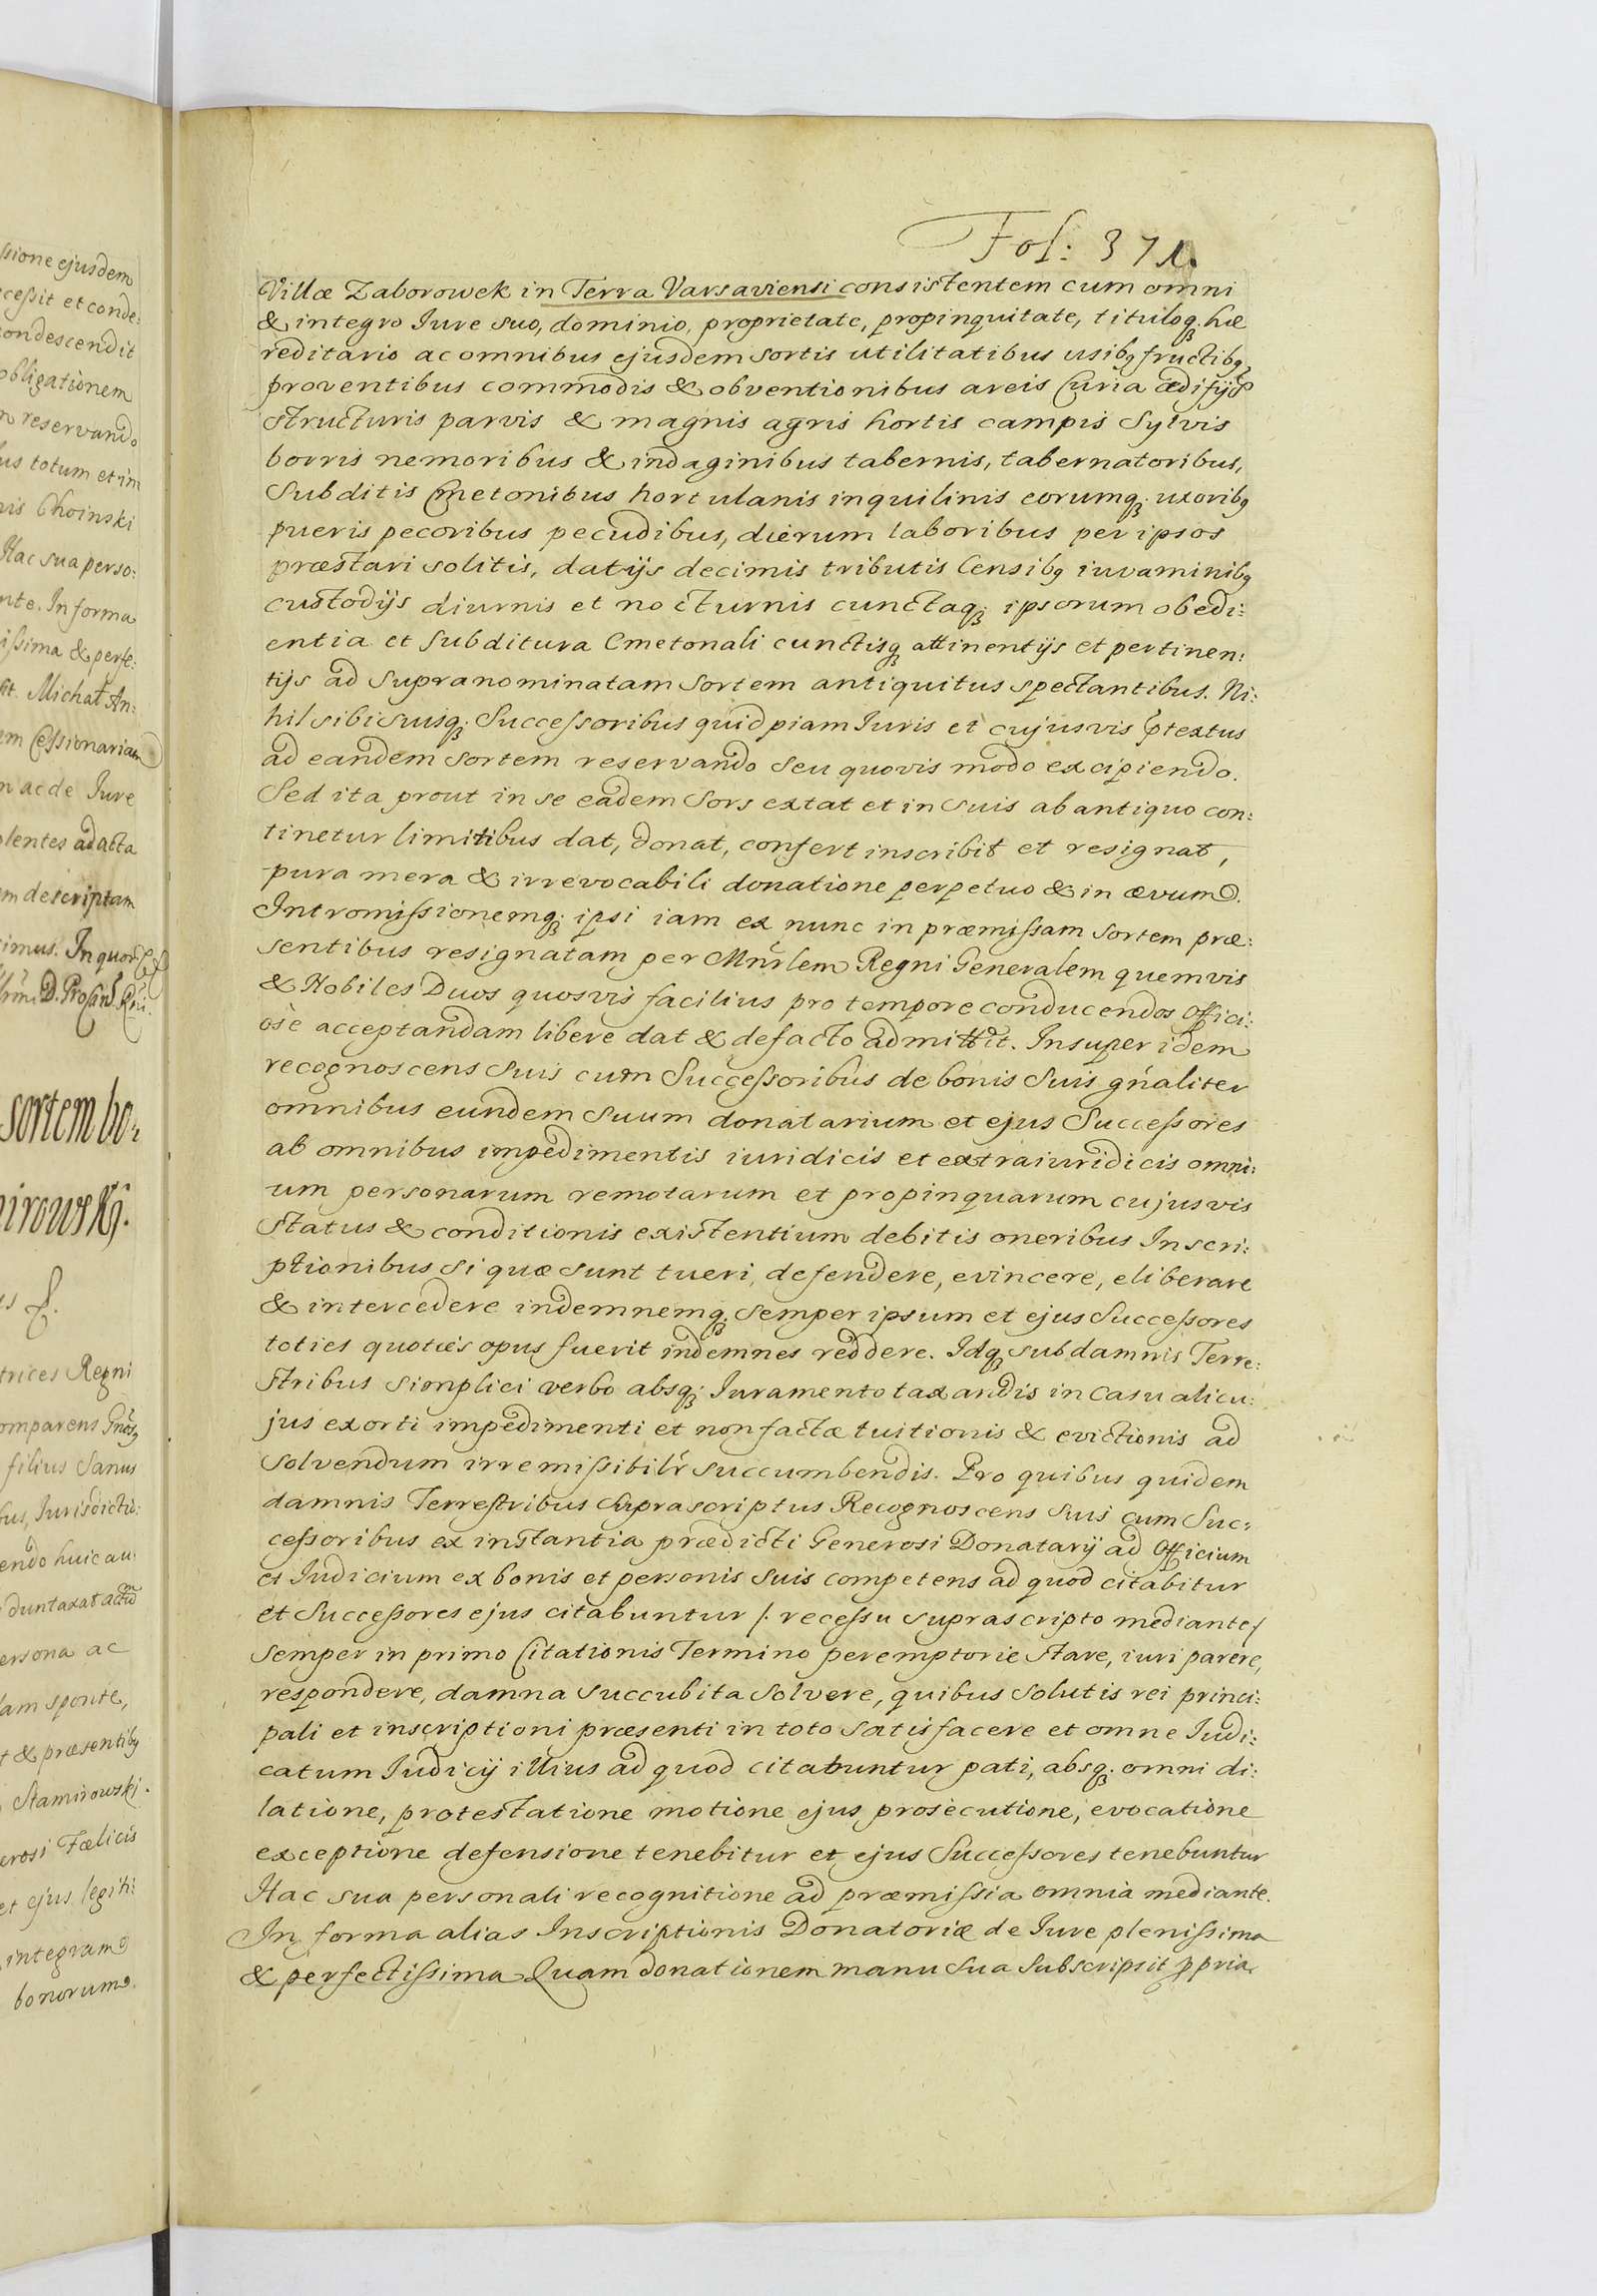 ssione ejusdem
cessit et conde:
condescendit
obligationem
n reservando
us totum et in
nis Choinski
Hac sua perso:
nte. In forma
issima & perfe:
Michał An:
em Cessionariam
n ac de Jure
olentes ad acta
em descriptam
cimus. In quor
sortem bo:
mirowskj.
trices Regni
omparens Gnosq
filius Sanus
bus, Jurisdictio:
endo huic au
duntaxat actu
ersona ac
lam sponte,
t & præsentibq
Stamirowski.
erosi Fœlicis
et ejus legiti:
integram
bonorum.
Fol: 371.
Villæ Zaborowek in Terra Varsaviensi consistentem cum omni
& integro Iure suo, dominio, proprietate, propinquitate, tituloq; hæ
reditario ac omnibus ejusdem sortis utilitatibus usibq fructibq,
proventibus commodis & obventionibus areis Curia ædifijs
structuris parvis & magnis agris hortis campis Sylvis
borris nemoribus & indaginibus tabernis, tabernatoribus,
Subditis Cmetonibus hortulanis inquilinis eorumq; uxoribq
pueris pecoribus pecudibus, dierum laboribus per ipsos
præstari solitis, datijs decimis tributis Censibq iuvaminibq
custodijs diurnis et nocturnis cunctaq; ipsorum obedi:
entia et subditura Cmetonali cunctisq attinentijs et pertinen:
tijs ad supranominatam sortem antiquitus spectantibus. Ni:
hil sibi suisq; Successoribus quidpiam Iuris et cujusvis ptextus
ad eandem sortem reservando seu quovis modo excipiendo.
Sed ita prout in se eadem Sors extat et in suis ab antiquo con:
tinetur limitibus dat, donat, confert inscribit et resignat,
pura mera & irrevocabili donatione perpetuo & in ævum.
Intromissionemq; ipsi iam ex nunc in præmissam sortem præ:
sentibus resignatam per Mnrlem Regni Generalem quemvis
& Nobiles Duos quosvis facilius pro tempore conducendos offici:
osè acceptandam libere dat & defacto admittit. Insuper idem
recognoscens suis cum Successoribus de bonis suis gnaliter
omnibus eundem suum donatarium et ejus Successores
ab omnibus impedimentis iuridicis et extraiuridicis omni:
um personarum remotarum et propinquarum cujusvis
status & conditionis existentium debitis oneribus Inscri:
ptionibus si quæ sunt tueri, defendere, evincere, eliberare
& intercedere indemnemq; semper ipsum et ejus Successores
toties quoties opus fuerit indemnes reddere. Idq; sub damnis Terre:
stribus simplici verbo absq; Iuramento taxandis in casu alicu:
jus exorti impedimenti et non factæ tuitionis & evictionis ad
solvendum irremissibilr succumbendis. Pro quibus quidem
damnis Terrestribus Suprascriptus Recognoscens suis cum Suc:
cessoribus ex instantia prædicti Generosi Donatarij ad Officium
et Iudicium ex bonis et personis suis competens ad quod citabitur
et Successores ejus citabuntur /. recessu suprascripto mediante /
semper in primo Citationis Termino peremptorie stare, iuri parere,
respondere, damna succubita solvere, quibus solutis rei princi:
pali et inscriptioni præsenti in toto satisfacere et omne Iudi:
catum Iudicij illius ad quod citabuntur pati, absq; omni di:
latione, protestatione motione ejus prosecutione, evocatione
exceptione defensione tenebitur et ejus Successores tenebuntur
Hac sua personali recognitione ad præmissia omnia mediante.
In forma alias Inscriptionis Donatoriæ de Iure plenissima
& perfectissima Quam donationem manu sua subscripsit ppria